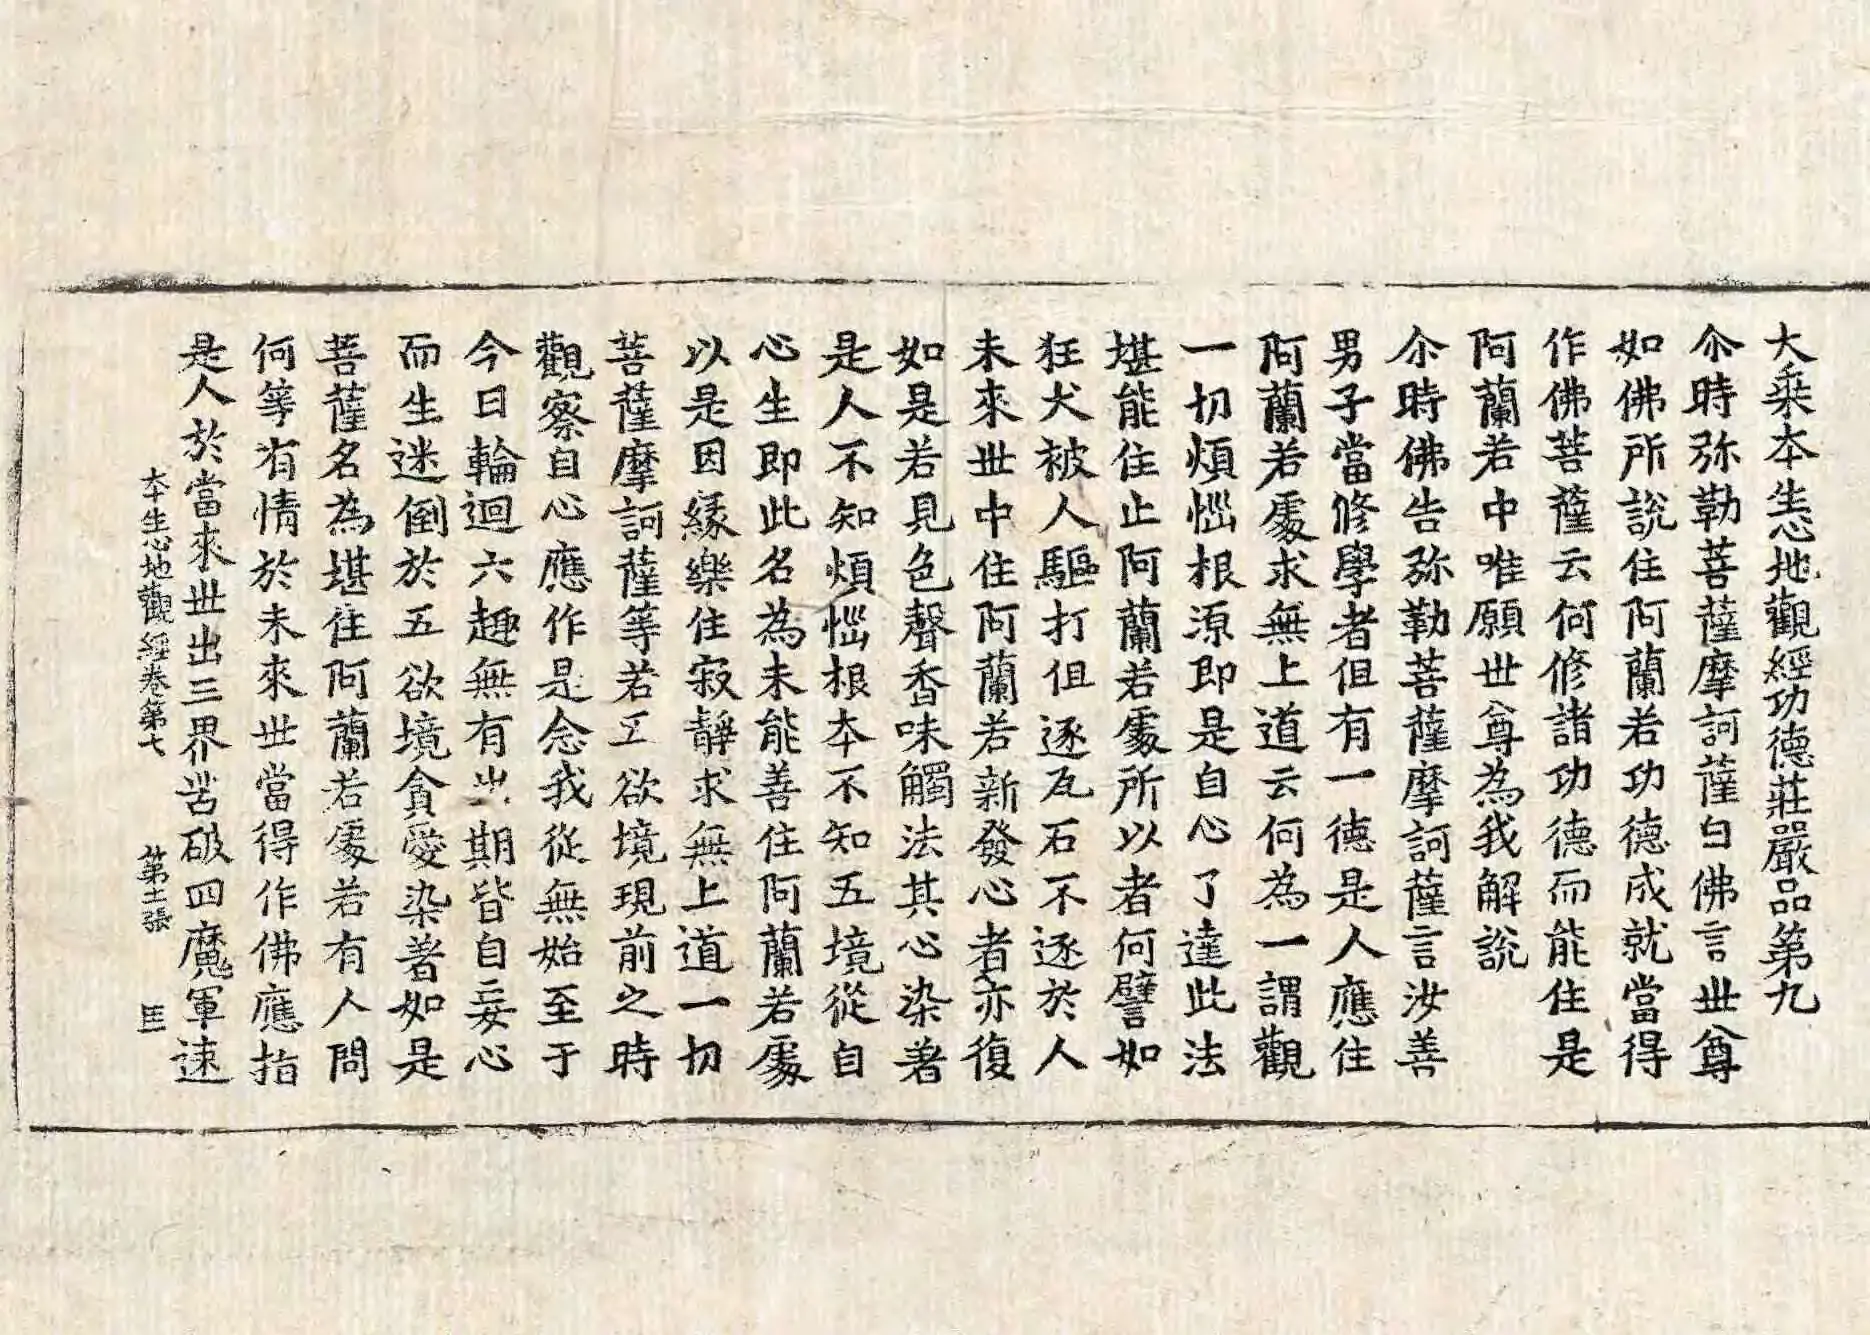 大乘本生心地觀經功德莊嚴品第九
尒時弥勒菩薩摩訶薩白佛言世尊
如佛所說住阿蘭若功德成就當得
作佛菩薩云何修諸功德而能住是
阿蘭若中唯願世尊為我解說
尒時佛告弥勒菩薩摩訶薩言汝善
男子當修學者但有一德是人應住
阿蘭若處求無上道云何為一謂觀
一切煩惱根源即是自心了達此法
堪能住止阿蘭若處所以者何譬如
狂犬被人驅打但逐瓦石不逐於人
未來世中住阿蘭若新發心者亦復
如是若見色聲香味觸法其心染著
是人不知煩惱根本不知五境從自
心生即此名為未能善住阿蘭若處
以是因緣樂住寂靜求無上道一切
菩薩摩訶薩等若五欲境現前之時
觀察自心應作是念我從無始至于
今日輪迴六趣無有出期皆自妄心
而生迷倒於五欲境貪愛染著如是
菩薩名為堪住阿蘭若處若有人問
何等有情於未來世當得作佛應指
是人於當來世出三界苦破四魔軍速
本生心地觀經卷第七 第十一張 匡